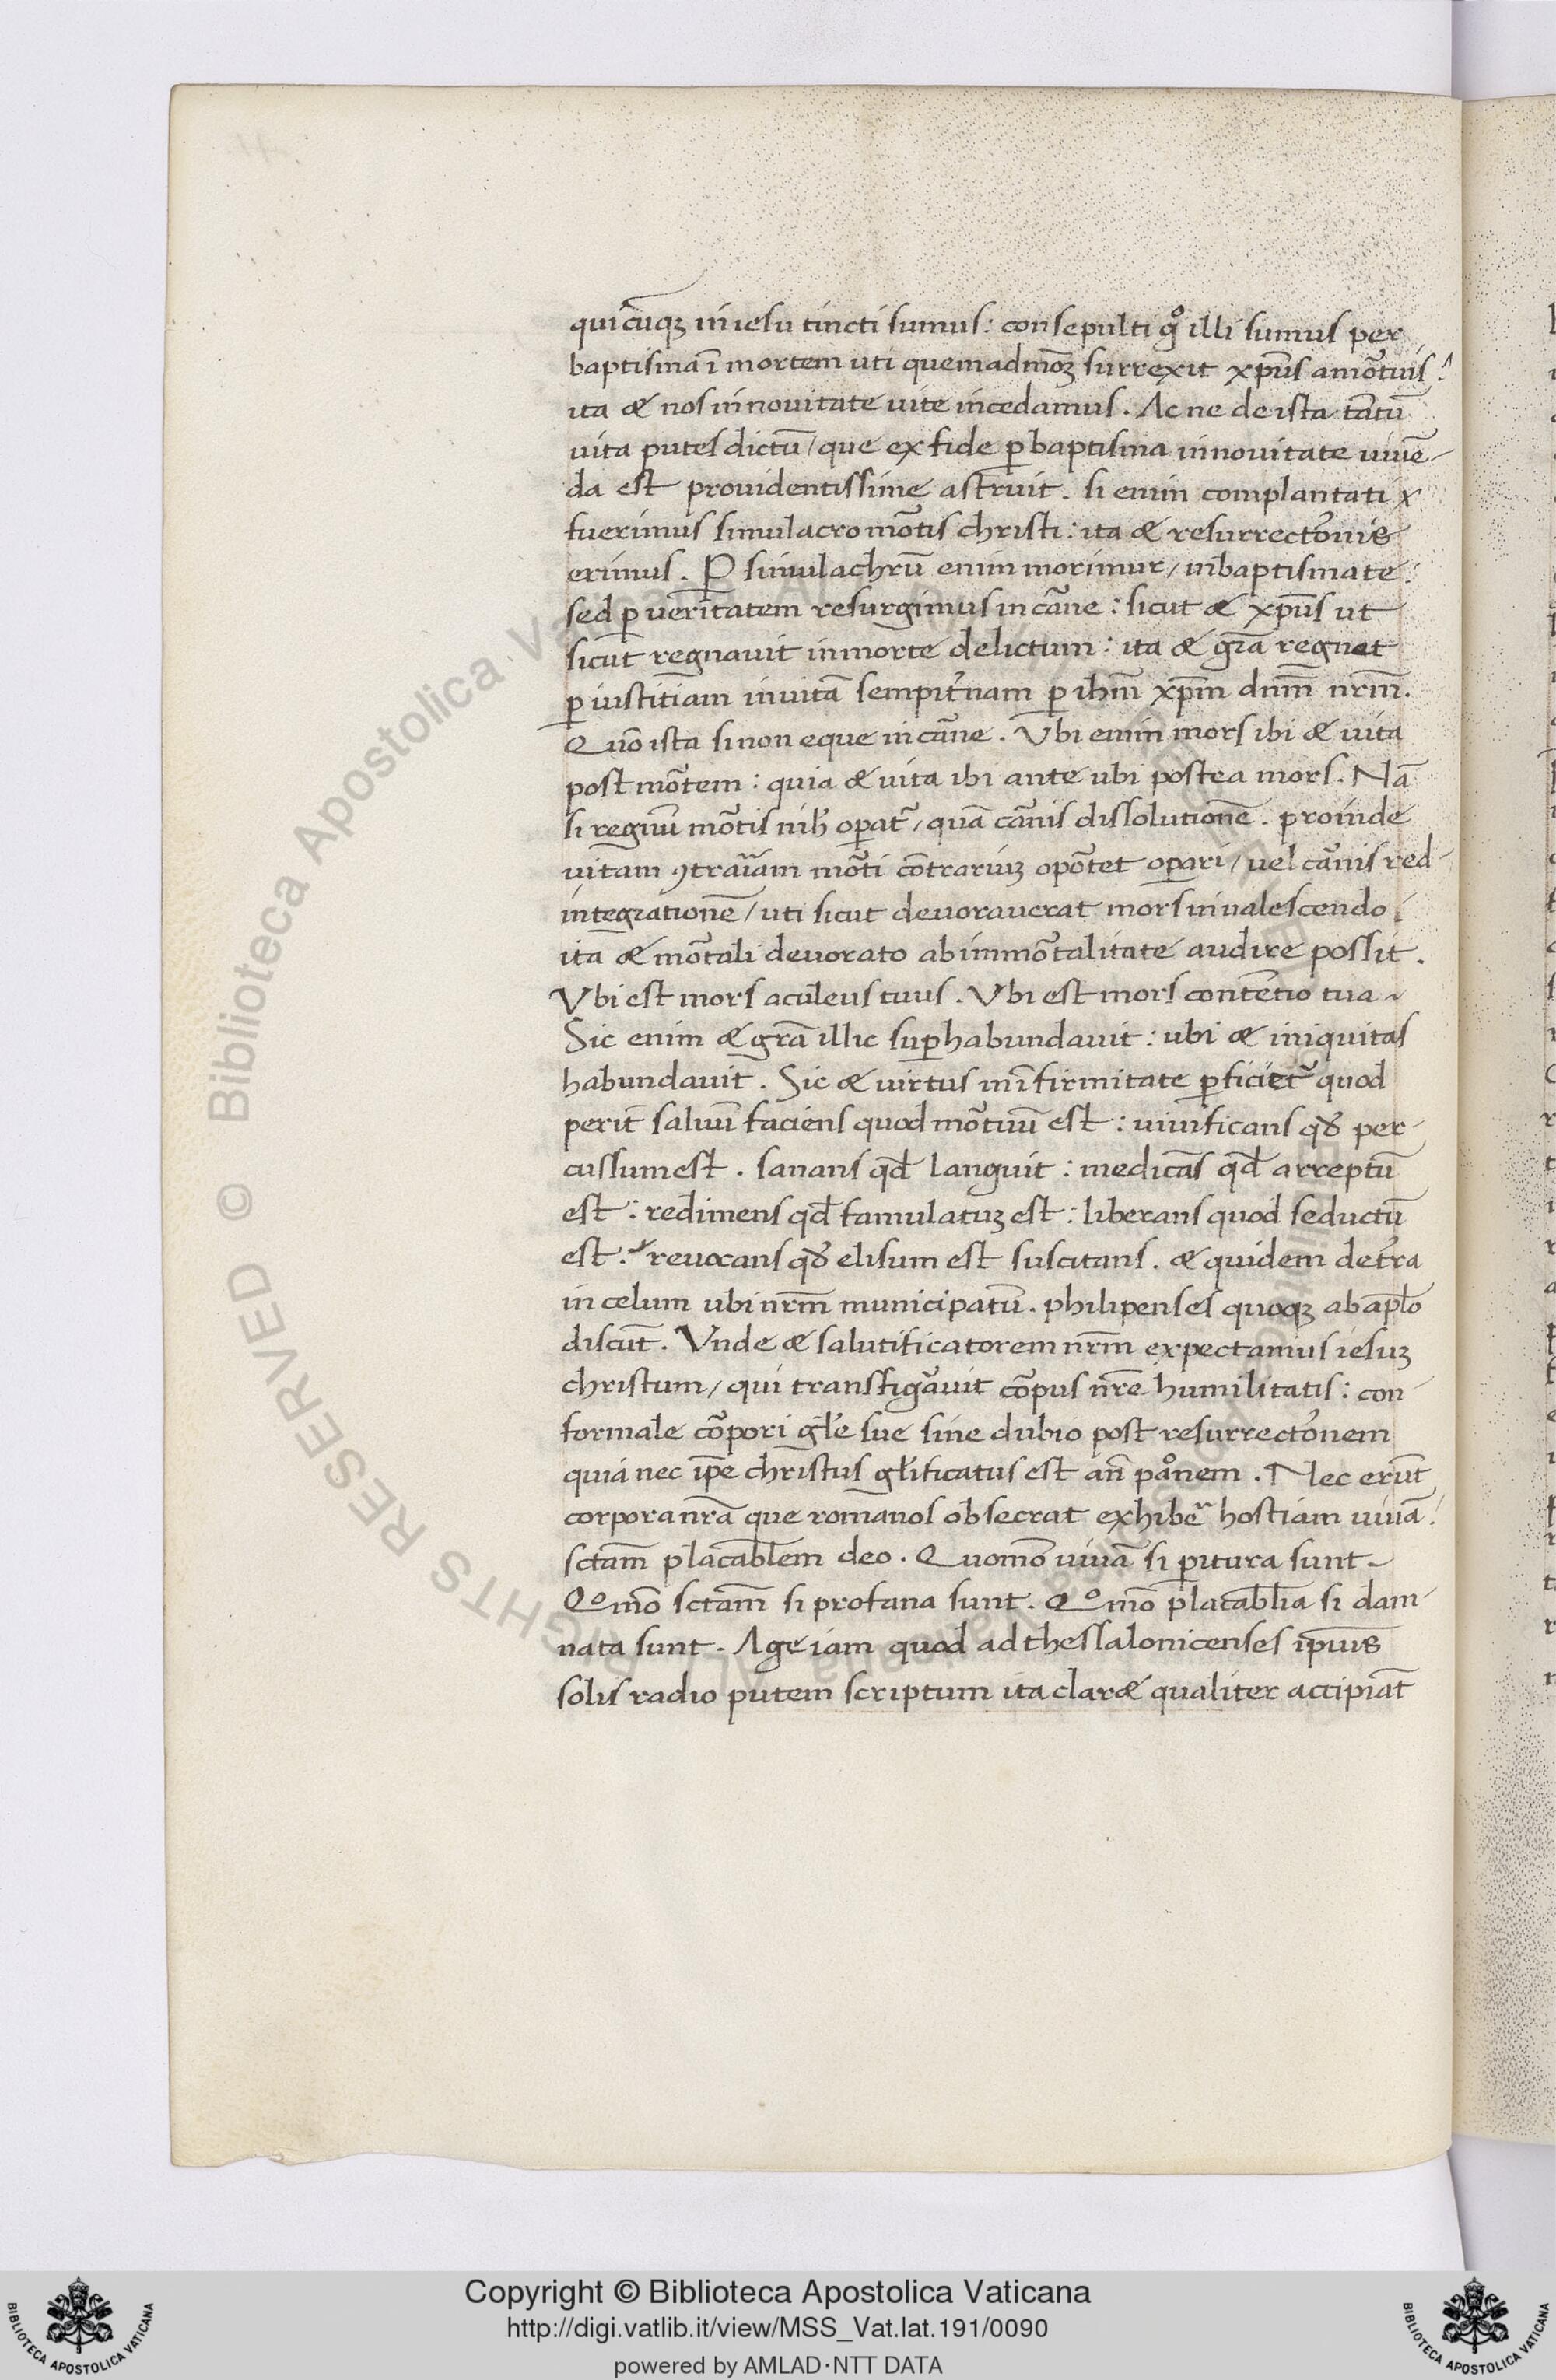 quicūqꝫ in iesu tincti sumus: consepulti gͦ illi sumus per
baptisma ī mortem uti quemadmōꝫ surrexit xp̄us a mōtuis:
ita & nos in nouitate uite incedamus. Ac ne de ista tātū
uita putes dictū/ que ex fide ꝑ baptisma in nouitate uiuē-
da est prouidentissime astruit. si enim complantati x
fuerimus simulacro mōtis christi: ita & resurrectōnis
erimus. P̱ simulachrū enim morimur/ in baptismate:
sed ꝑ ueritatem resurgimus in cāne: sicut & xp̄us ut
sicut regnauit in morte delictum: ita & gr̄a regnet
ꝑ iustitiam in uitā sempit̄nam ꝑ ih̄m xp̄m dn̄m nr̄m.
Quō ista si non eque in cāne. Vbi enim mors ibi & uita
post mōtem: quia & uita ibi ante ubi postea mors. Nā
si regnū mōtis nih̄ oꝑat̄/ quā cānis dissolutionē. proinde
uitam ꝯtrariam mōti cōtrariuꝫ opōtet oꝑari/ uel cānis red-
integrationē/ uti sicut deuorauerat mors inualescendo:
ita & mōtali deuorato ab immōtalitate audire possit.
Vbi est mors aculeus tuus. Vbi est mors contētio tua~
Sic enim & gr̄a illic suꝑhabundauit: ubi & iniquitas
habundauit. Sic & uirtus in īfirmitate ꝑficiet̄ quod
perit saluū faciens quod mōtuū est: uiuificans qđ per-
cussum est. sanans qd̄ languit: medicās qd̄ arreptū
est: redimens qd̄ famulatuꝫ est: liberans quod seductū
est: reuocans qđ elisum est suscitans. & quidem de t̄ra
in celum ubi nr̄m municipatū. philipenses quoqꝫ ab apl̄o
discūt. Vnde & salutificatorem nr̄m expectamus iesuꝫ
christum/ qui transfigāuit cōpus nr̄e humilitatis: con-
formale cōpori gl̄e sue sine dubio post resurrectōnem
quia nec ip̄e christus gl̄ificatus est an̄ pāonem. Nec erūt
corpora nr̄a que romanos obsecrat exhibē hostiam uiuā:
sctām placabl̄em deo. Quomō uiuā si ꝑitura sunt-
Qͦmō sctām si profana sunt. Qͦmō placabl̄ia si dam-
nata sunt. Age iam quod ad thessalonicenses ip̄ius
solis radio putem scriptum ita clar& qualiter accipiāt
Copyright © Biblioteca Apostolica Vaticana
http://digi.vatlib.it/view/MSS_Vat.lat.191/0090
powered by AMLAD·NTT DATA